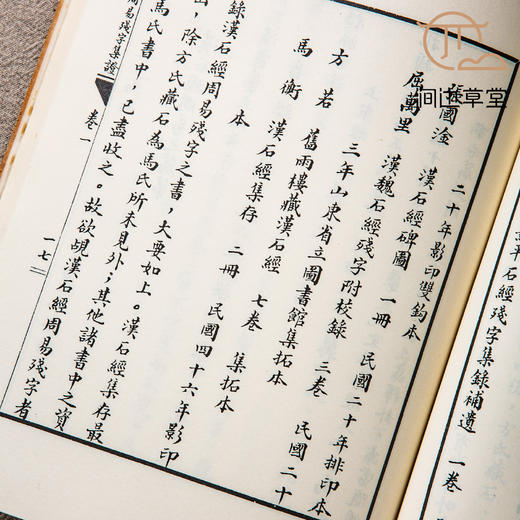 平石經殘字集錄補遺 一卷
二十年影印雙鉤本
張國淦 漢石經碑圖 一冊 民國二十年排印本
屈萬里 漢魏石經殘字附校錄 三卷 民國二十
三年山東省立圖書館集拓本
方若 舊雨樓藏漢石經 七卷 集拓本
馬衡 漢石經集存 二冊 民國四十六年影印
本
錄漢石經周易殘字之書，大要如上。漢石經集存最
，除方氏藏石為馬氏所未見外；其他諸書中之資
馬氏書中，已盡收之。故欲覘漢石經周易殘字者
周易殘字集證 卷一 一七
草堂